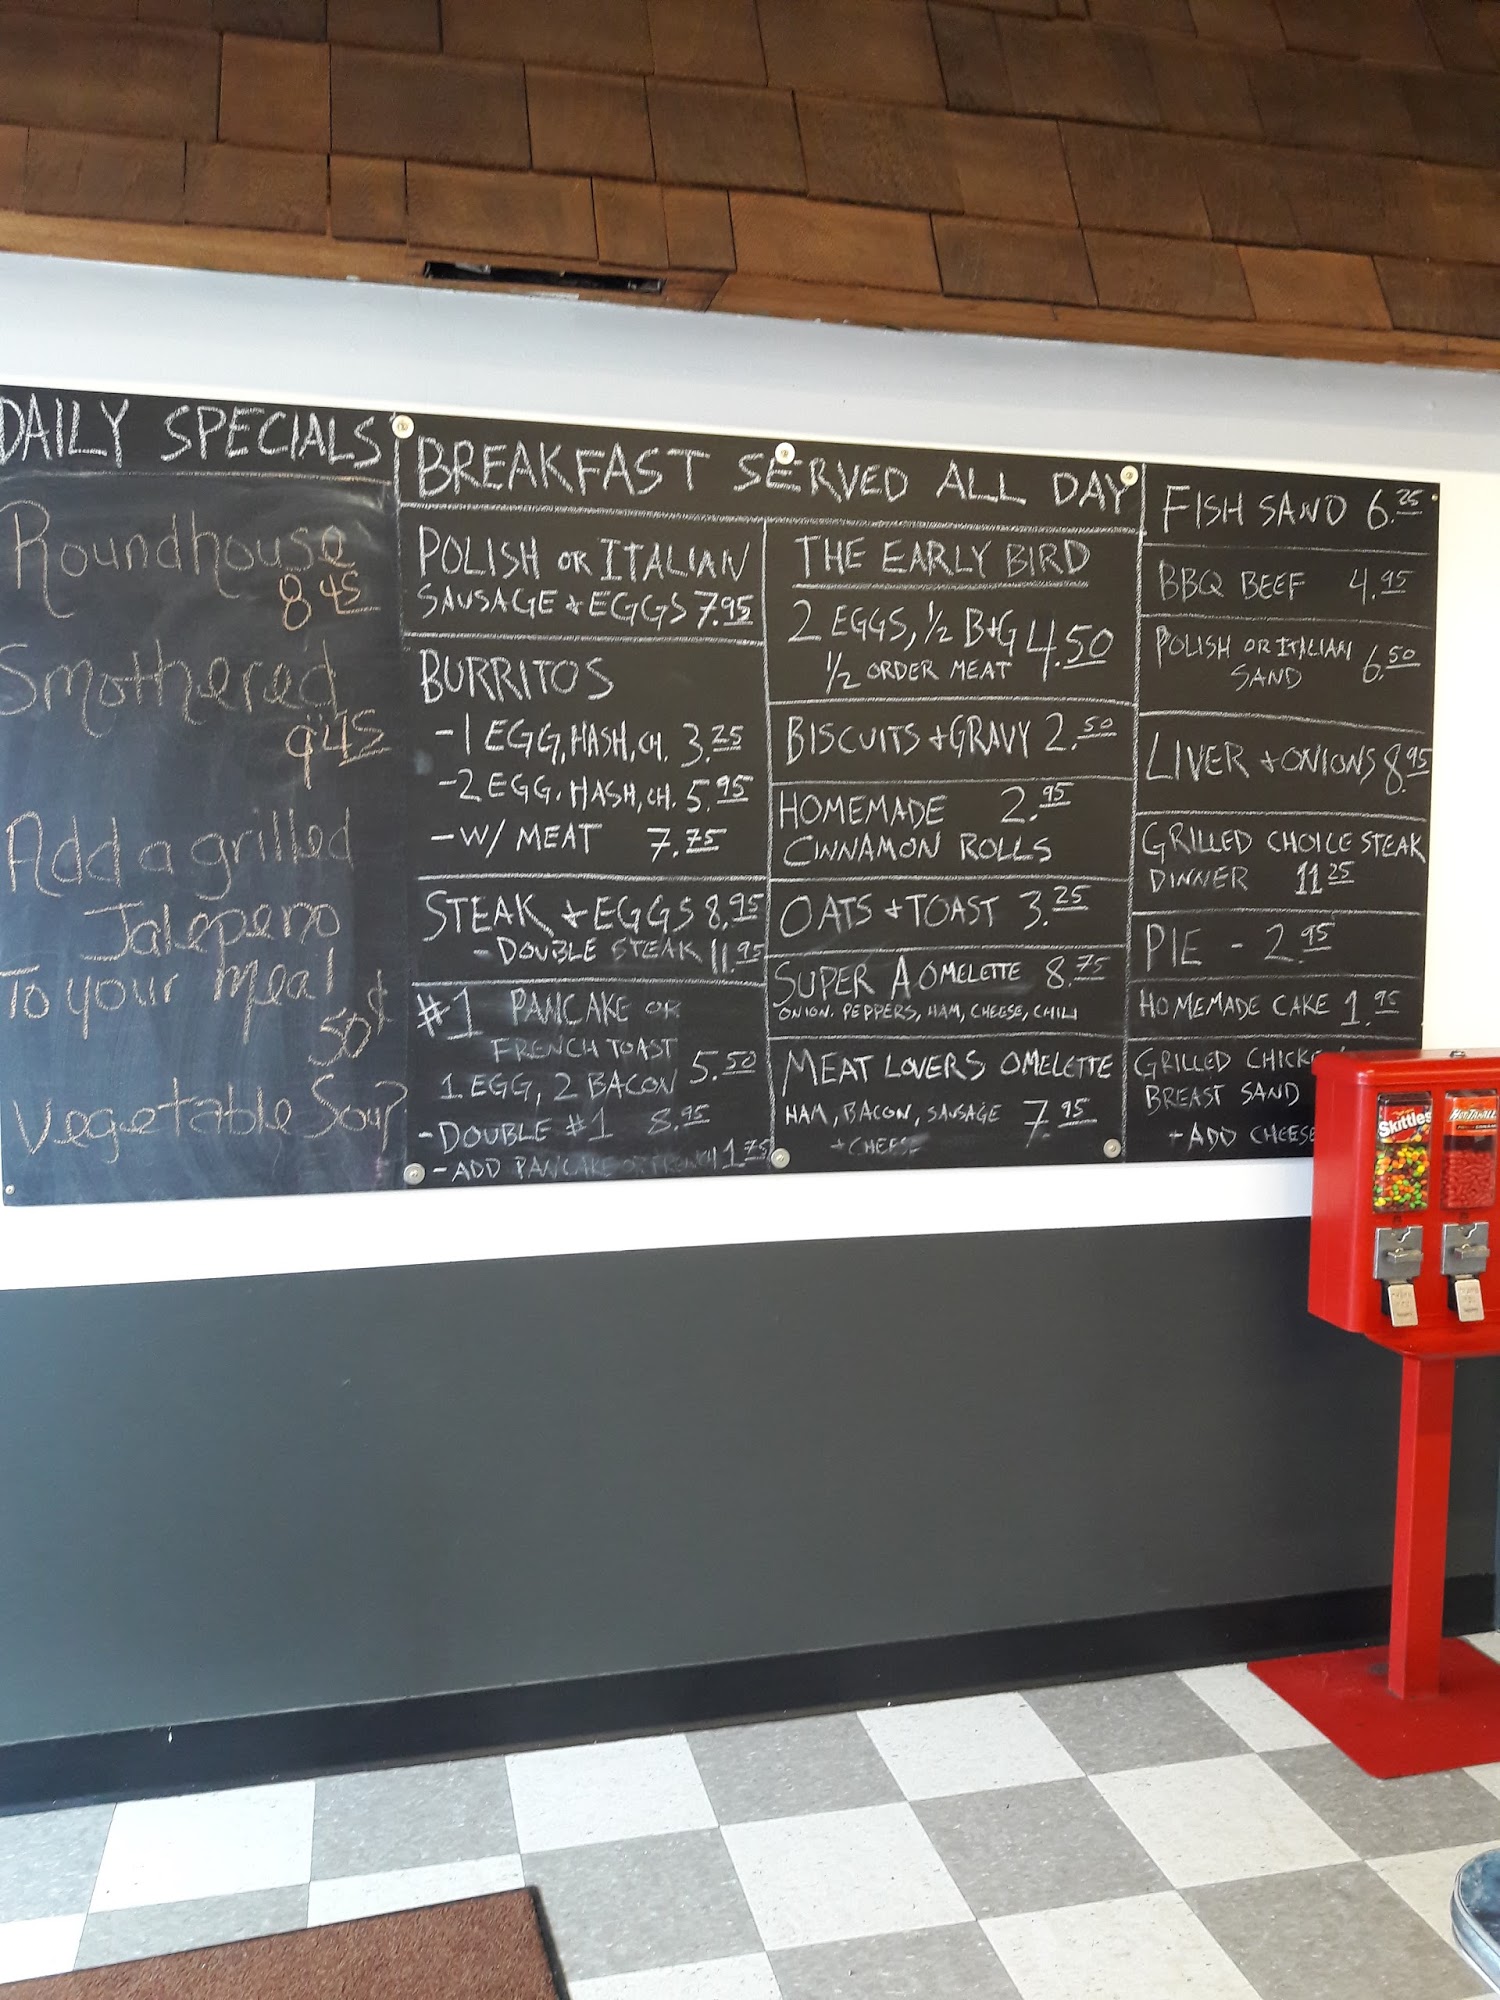 DAILY SPECIALS
Roundhouse
8 45
Smothered
9 45
Add a grilled
Jalepeno
To your meal
50¢
Vegetable Soup
BREAKFAST SERVED ALL DAY
POLISH OR ITALIAN
SAUSAGE + EGGS 7.95
BURRITOS
-1 EGG, HASH, CH. 3.25
-2 EGG, HASH, CH. 5.95
-W/ MEAT 7.75
STEAK + EGGS 8.95
-DOUBLE STEAK 11.95
#1 PANCAKE OR
FRENCH TOAST
1 EGG, 2 BACON 5.50
-DOUBLE #1 8.95
-ADD PANCAKE OR FRENCH 1.75
THE EARLY BIRD
2 EGGS, 1/2 B+G 4.50
1/2 ORDER MEAT
BISCUITS + GRAVY 2.50
HOMEMADE 2.95
CINNAMON ROLLS
OATS + TOAST 3.25
SUPER A OMELETTE 8.75
ONION. PEPPERS, HAM, CHEESE, CHILI
MEAT LOVERS OMELETTE
HAM, BACON, SAUSAGE 7.95
+ CHEESE
FISH SAND 6.25
BBQ BEEF 4.95
POLISH OR ITALIAN 6.50
SAND
LIVER + ONIONS 8.95
GRILLED CHOICE STEAK
DINNER 11 25
PIE - 2.95
HOMEMADE CAKE 1.95
GRILLED CHICKE
BREAST SAND
-ADD CHEESE
Skittles
HOT TAMALES